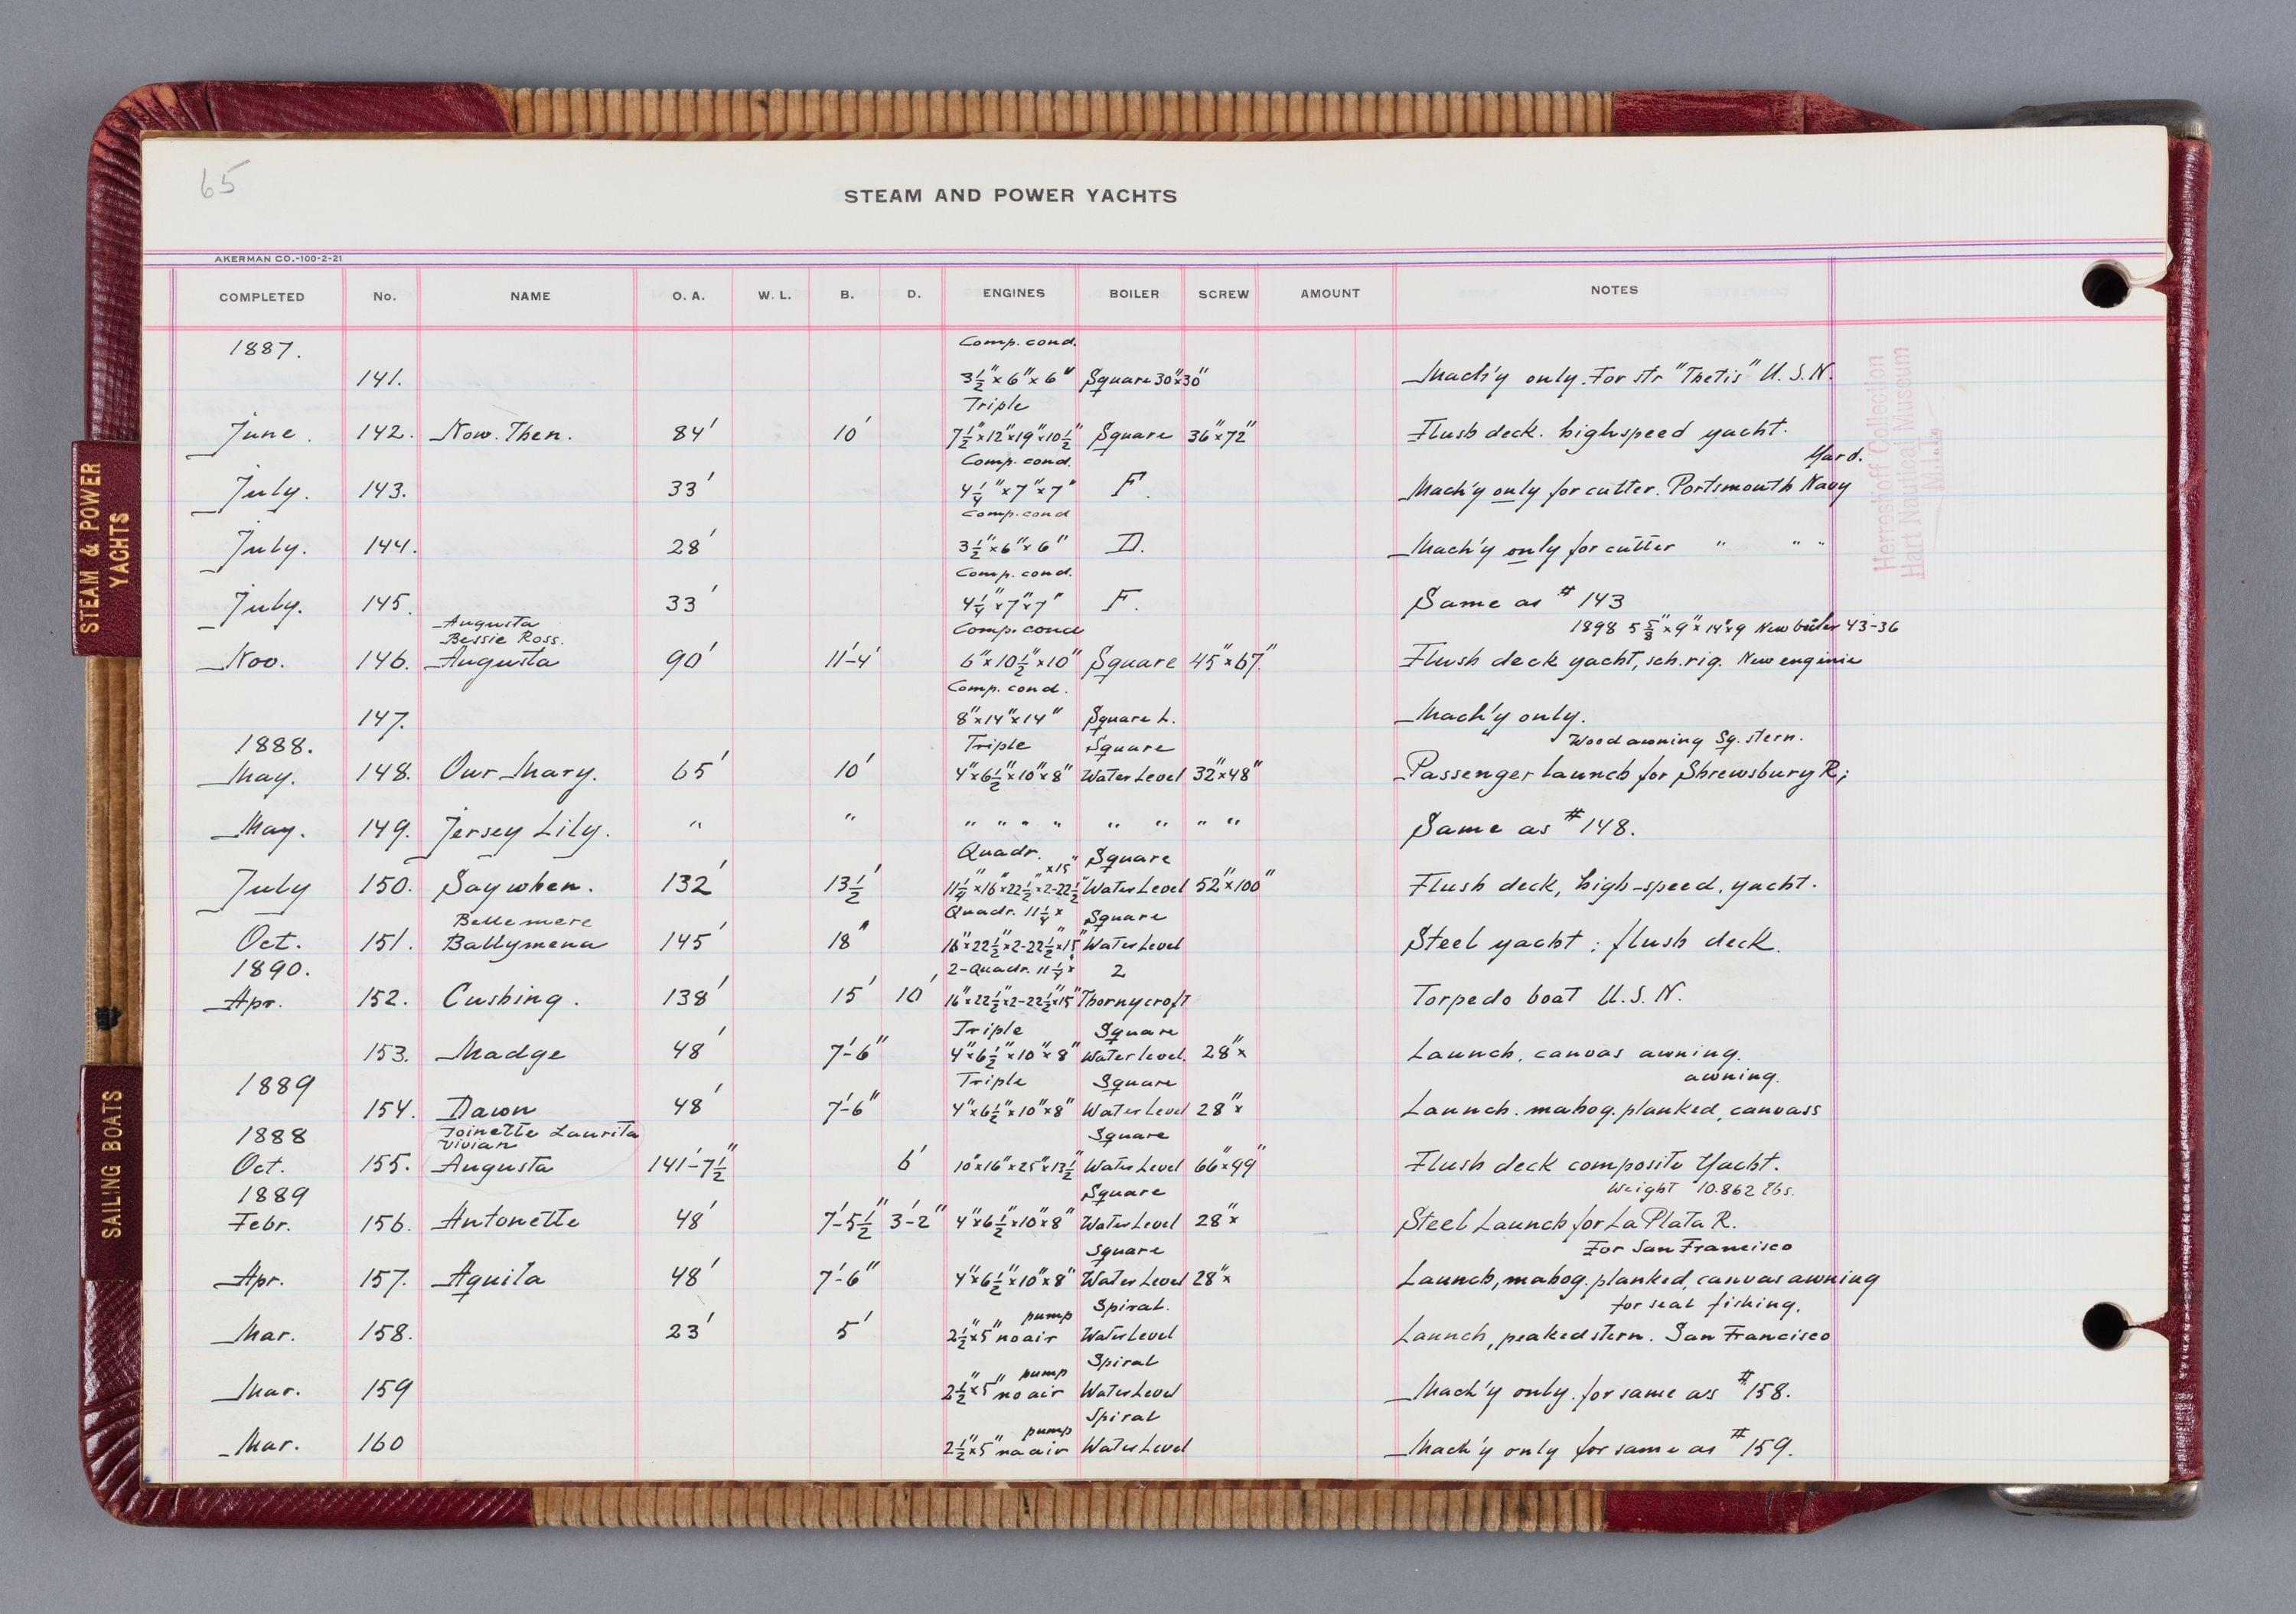 65
STEAM AND POWER YACHTS
AKERMAN CO.-100-2-21
COMPLETED No. NAME O. A. W. L. B. D. ENGINES BOILER SCREW AMOUNT NOTES
1887. Comp. cond.
141. 3½"x6"x6" Square 30"x30" Mach'y only. For str "Thetis" U.S.N.
Triple
June. 142. Now. Then. 84' 10' 7½"x12"x19"x10½" Square 36"x72" Flush deck. highspeed yacht.
Comp. cond. Yard.
July. 143. 33' 4¼"x7"x7" F. Mach'y only for cutter. Portsmouth Navy
Comp. cond
July. 144. 28' 3½"x6"x6" D. Mach'y only for cutter " " "
Comp. cond.
July. 145. 33' 4¼"x7"x7" F. Same as # 143
Augusta
Bessie Ross. Comp. cond 1898 5⅝"x9"x14"x9 New boiler 43-36
Nov. 146. Augusta 90' 11'-4' 6"x10½"x10" Square 45"x67" Flush deck yacht, sch. rig. New engine
Comp. cond.
147. 8"x14"x14" Square L. Mach'y only.
1888. Triple Square Wood awning Sq. stern.
May. 148. Our Mary. 65' 10' 4"x6½"x10"x8" Water Level 32"x48" Passenger launch for Shrewsbury R;
May. 149. Jersey Lily. " " " " " " " " " " Same as # 148.
Quadr. x15" Square
July 150. Say when. 132' 13½' 11¼"x16"x22½"x2-22½" Water Level 52"x100" Flush deck, high-speed, yacht.
Bellemere Quadr. 11¼x Square
Oct. 151. Ballymena 145' 18" 16"x22½"x2-22½"x15" Water Level Steel yacht; flush deck.
1890. 2-Quadr. 11¼x 2
Apr. 152. Cushing. 138' 15' 10' 16"x22½"x2-22½"x15" Thornycroft Torpedo boat U.S.N.
Triple Square
153. Madge 48' 7'-6" 4"x6½"x10"x8" Water level. 28"x Launch, canvas awning.
1889 Triple Square awning.
154. Dawn 48' 7'-6" 4"x6½"x10"x8" Water Level 28"x Launch. mahog. planked, canvass
1888 Toinette Laurita Square
Vivian
Oct. 155. Augusta 141'-7½" 6' 10"x16"x25"x13½" Water Level 66"x99" Flush deck composite Yacht.
1889 Square Weight 10.862 lbs.
Febr. 156. Antonette 48' 7'-5½" 3'-2" 4"x6½"x10"x8" Water Level 28"x Steel Launch for La Plata R.
Square For San Francisco
Apr. 157. Aquila 48' 7'-6" 4"x6½"x10"x8" Water Level 28"x Launch, mahog. planked, canvas awning
pump Spiral. for seal fishing.
Mar. 158. 23' 5' 2½"x5" no air Water Level Launch, peaked stern. San Francisco
pump Spiral
Mar. 159 2½"x5" no air Water Level Mach'y only. for same as # 158.
pump Spiral
Mar. 160 2½"x5" no air Water Level Mach'y only for same as # 159.
Herreshoff Collection
Hart Nautical Museum
M.I.T.
STEAM & POWER
YACHTS
SAILING BOATS